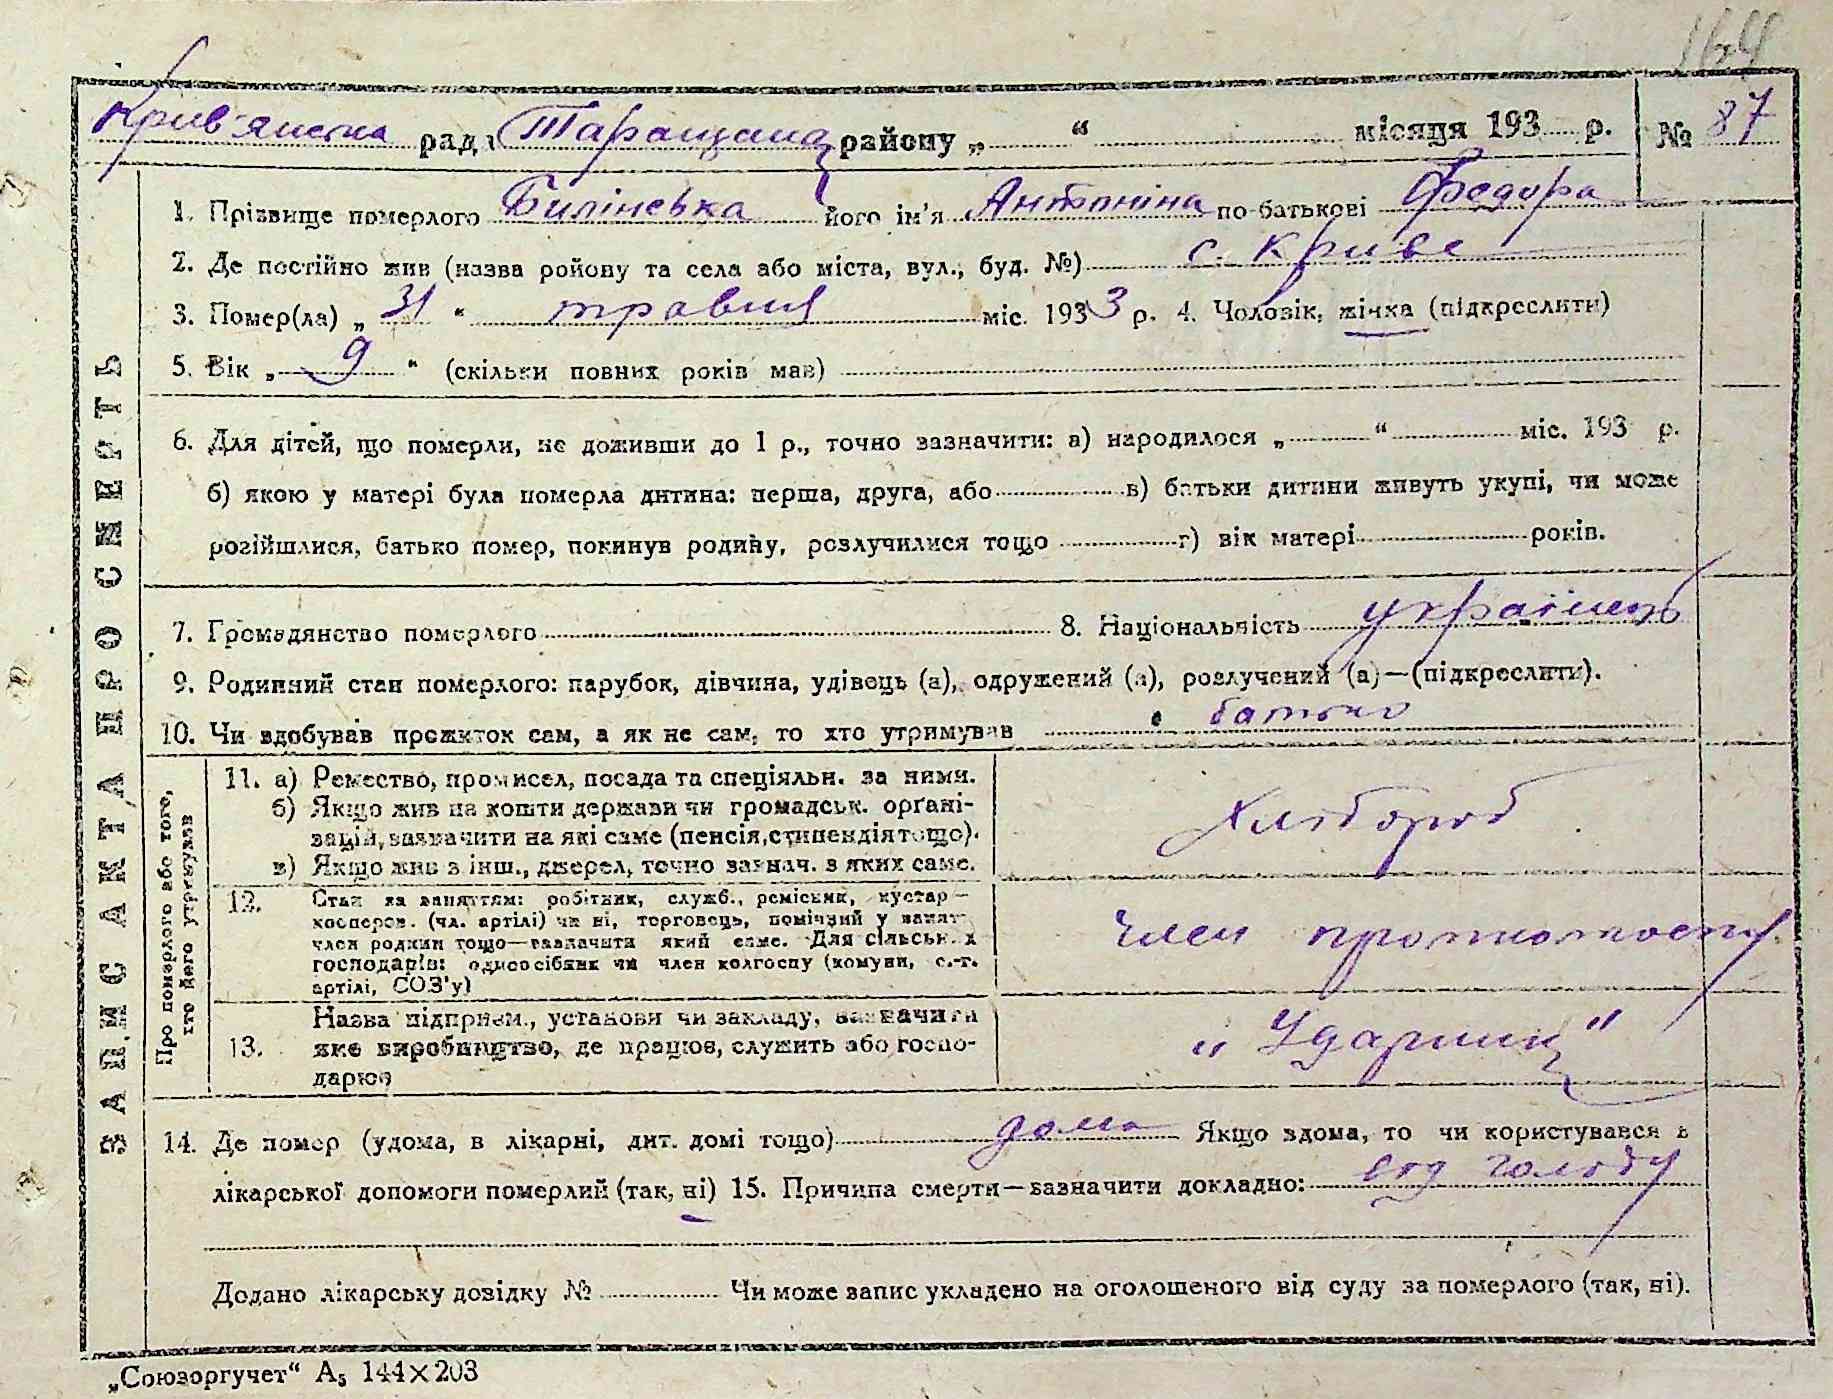 164
Крив'янська рада Таращанськ району „ “ місяця 193 р. № 87
ЗАПИС АКТА ПРО СМЕРТЬ
1. Прізвище померлого Билінська його ім'я Антоніна по-батькові Федора
2. Де постійно жив (назва ройону та села або міста, вул., буд. №) с. Криве
3. Помер(ла) „ 31 “ травня міс. 1933 р. 4. Чоловік, жінка (підкреслити)
5. Вік „ 9 “ (скільки повних років мав)
6. Для дітей, що померли, не доживши до 1 р., точно зазначити: а) народилося „ “ міс. 193 р.
б) якою у матері була померла дитина: перша, друга, або в) батьки дитини живуть укупі, чи може
розійшлися, батько помер, покинув родину, розлучилися тощо г) вік матері років.
7. Громадянство померлого 8. Національність українець
9. Родинний стан померлого: парубок, дівчина, удівець (а), одружений (а), розлучений (а)—(підкреслити).
10. Чи здобував прожиток сам, а як не сам, то хто утримував батько
Про померлого або того, хто його утримував
11. а) Ремество, промисел, посада та спеціяльн. за ними.
б) Якщо жив на кошти держави чи громадськ. орґані-
зацій, зазначити на які саме (пенсія, стипендія тощо).
в) Якщо жив з інш., джерел, точно зазнач. з яких саме.
Хлібороб
12. Стан за заняттям: робітник, служб., ремісник, кустар—
кооперов. (чл. артілі) чи ні, торговець, помічний у занят.
член родини тощо—зазначити який саме. Для сільськ. х
господарів: одноосібник чи член колгоспу (комуни, с.-г.
артілі, СОЗ'у)
член
13. Назва підприєм., установи чи закладу, зазначити
яке виробництво, де працює, служить або госпо-
дарює
„ Ударник “
14. Де помер (удома, в лікарні, дит. домі тощо) дома Якщо вдома, то чи користувався з
лікарської допомоги померлий (так, ні) 15. Причина смерти—зазначити докладно: від голоду
Додано лікарську довідку № Чи може запис укладено на оголошеного від суду за померлого (так, ні).
„Союзоргучет“ А₅ 144×203